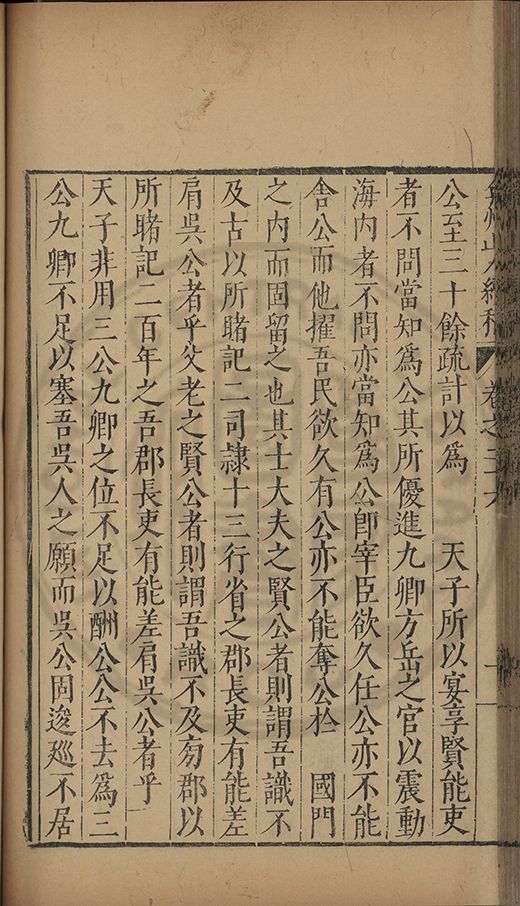 公至三十餘疏計以爲　天子所以宴享賢能吏
者不問當知爲公其所優進九卿方岳之官以震動
海内者不問亦當知爲公卽宰臣欲久任公亦不能
舍公而他擢吾民欲久有公亦不能奪公於　國門
之内而固留之也其士大夫之賢公者則謂吾識不
及古以所睹記二司隸十三行省之郡長吏有能差
肩吳公者乎父老之賢公者則謂吾識不及旁郡以
所睹記二百年之吾郡長吏有能差肩吳公者乎
天子非用三公九卿之位不足以酬公公不去爲三
公九卿不足以塞吾吳人之願而吳公固逡廵不居